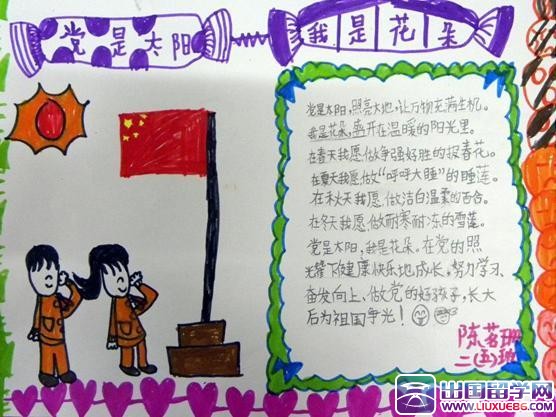 党是太阳
我是花朵
党是太阳,照亮大地,让万物充满生机。
我是花朵,盛开在温暖的阳光里。
在春天我愿做争强好胜的报春花。
在夏天我愿做“呼呼大睡”的睡莲。
在秋天我愿做洁白温柔的百合。
在冬天我愿做耐寒耐冻的雪莲。
党是太阳,我是花朵。在党的照
耀下健康快乐地成长。努力学习、
奋发向上,做党的好孩子,长大
后为祖国争光!
陈茗珊
二(五)班
出国留学网
WWW.LIUXUE86.COM